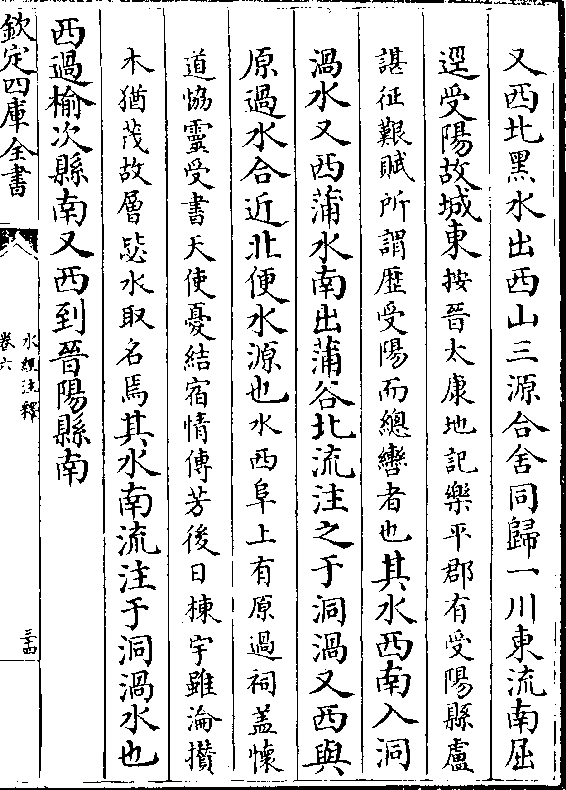 又西北黑水出西山三源合舍同歸一川東流南屈
逕受陽故城東按晉太康地記樂平郡有受陽縣盧
諶征艱賦所謂歴受陽而總轡者也其水西南入洞
渦水又西蒲水南出蒲谷北流注之于洞渦又西與
原過水合近北便水源也水西阜上有原過祠蓋懷
道恊靈受書天使憂結宿情傳芳後日棟宇雖淪攅
木猶茂故層毖水取名焉其水南流注于洞渦水也
西過榆次縣南又西到晉陽縣南
欽定四庫全書
水經注釋
卷六
三十四